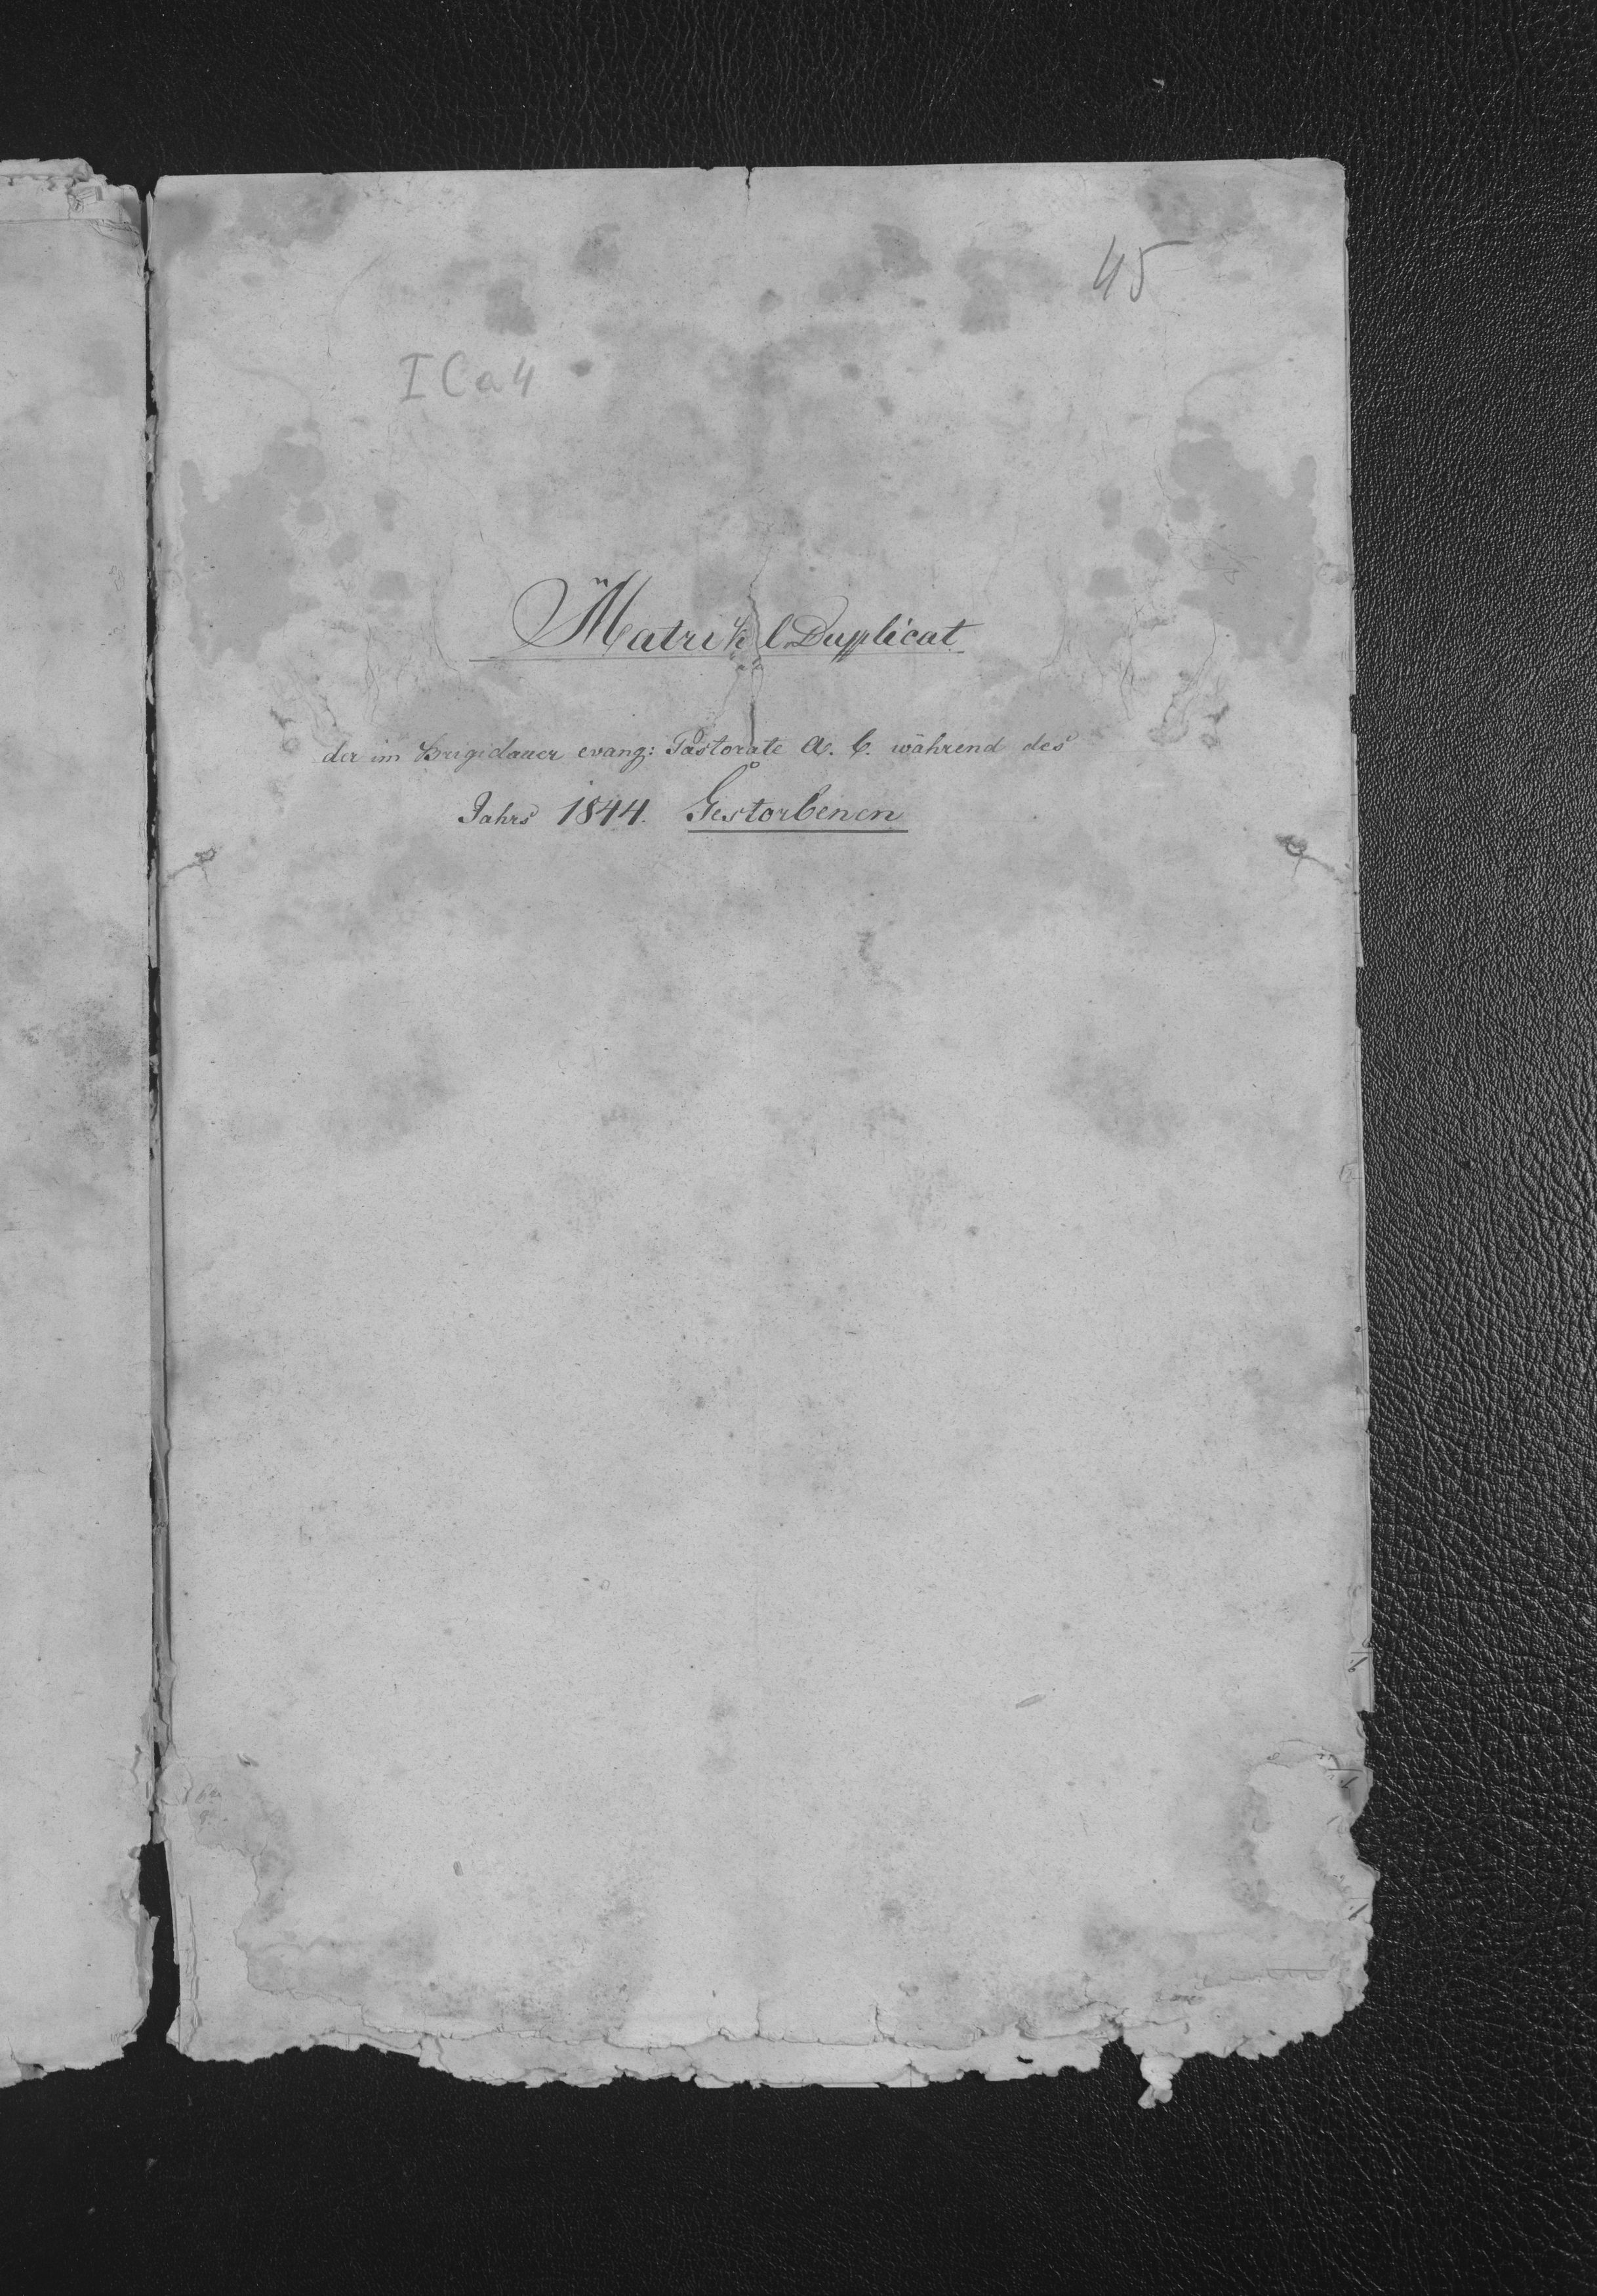 45
I C a 4
Matrikel Duplicat
der im Brigidauer evang: Pastorate A. C. während des
Jahrs 1844. Gestorbenen